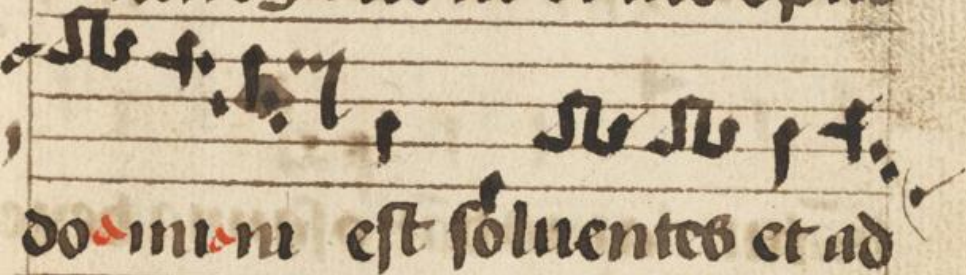 domini est soluentes et ad